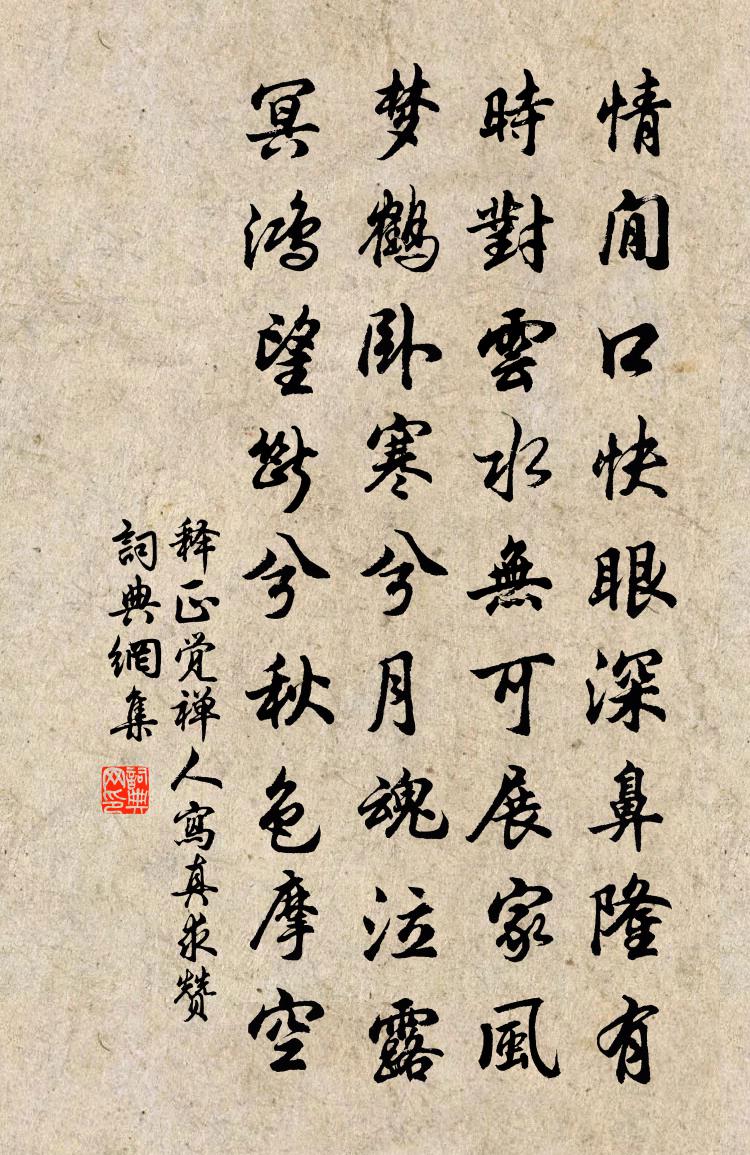 情閒口快眼深鼻隆有
時對雲水無可展家風
梦鶴卧寒兮月魂泣露
冥鴻望断兮秋色摩空
释正覚禅人寫真求赞
詞典網集
詞典网印